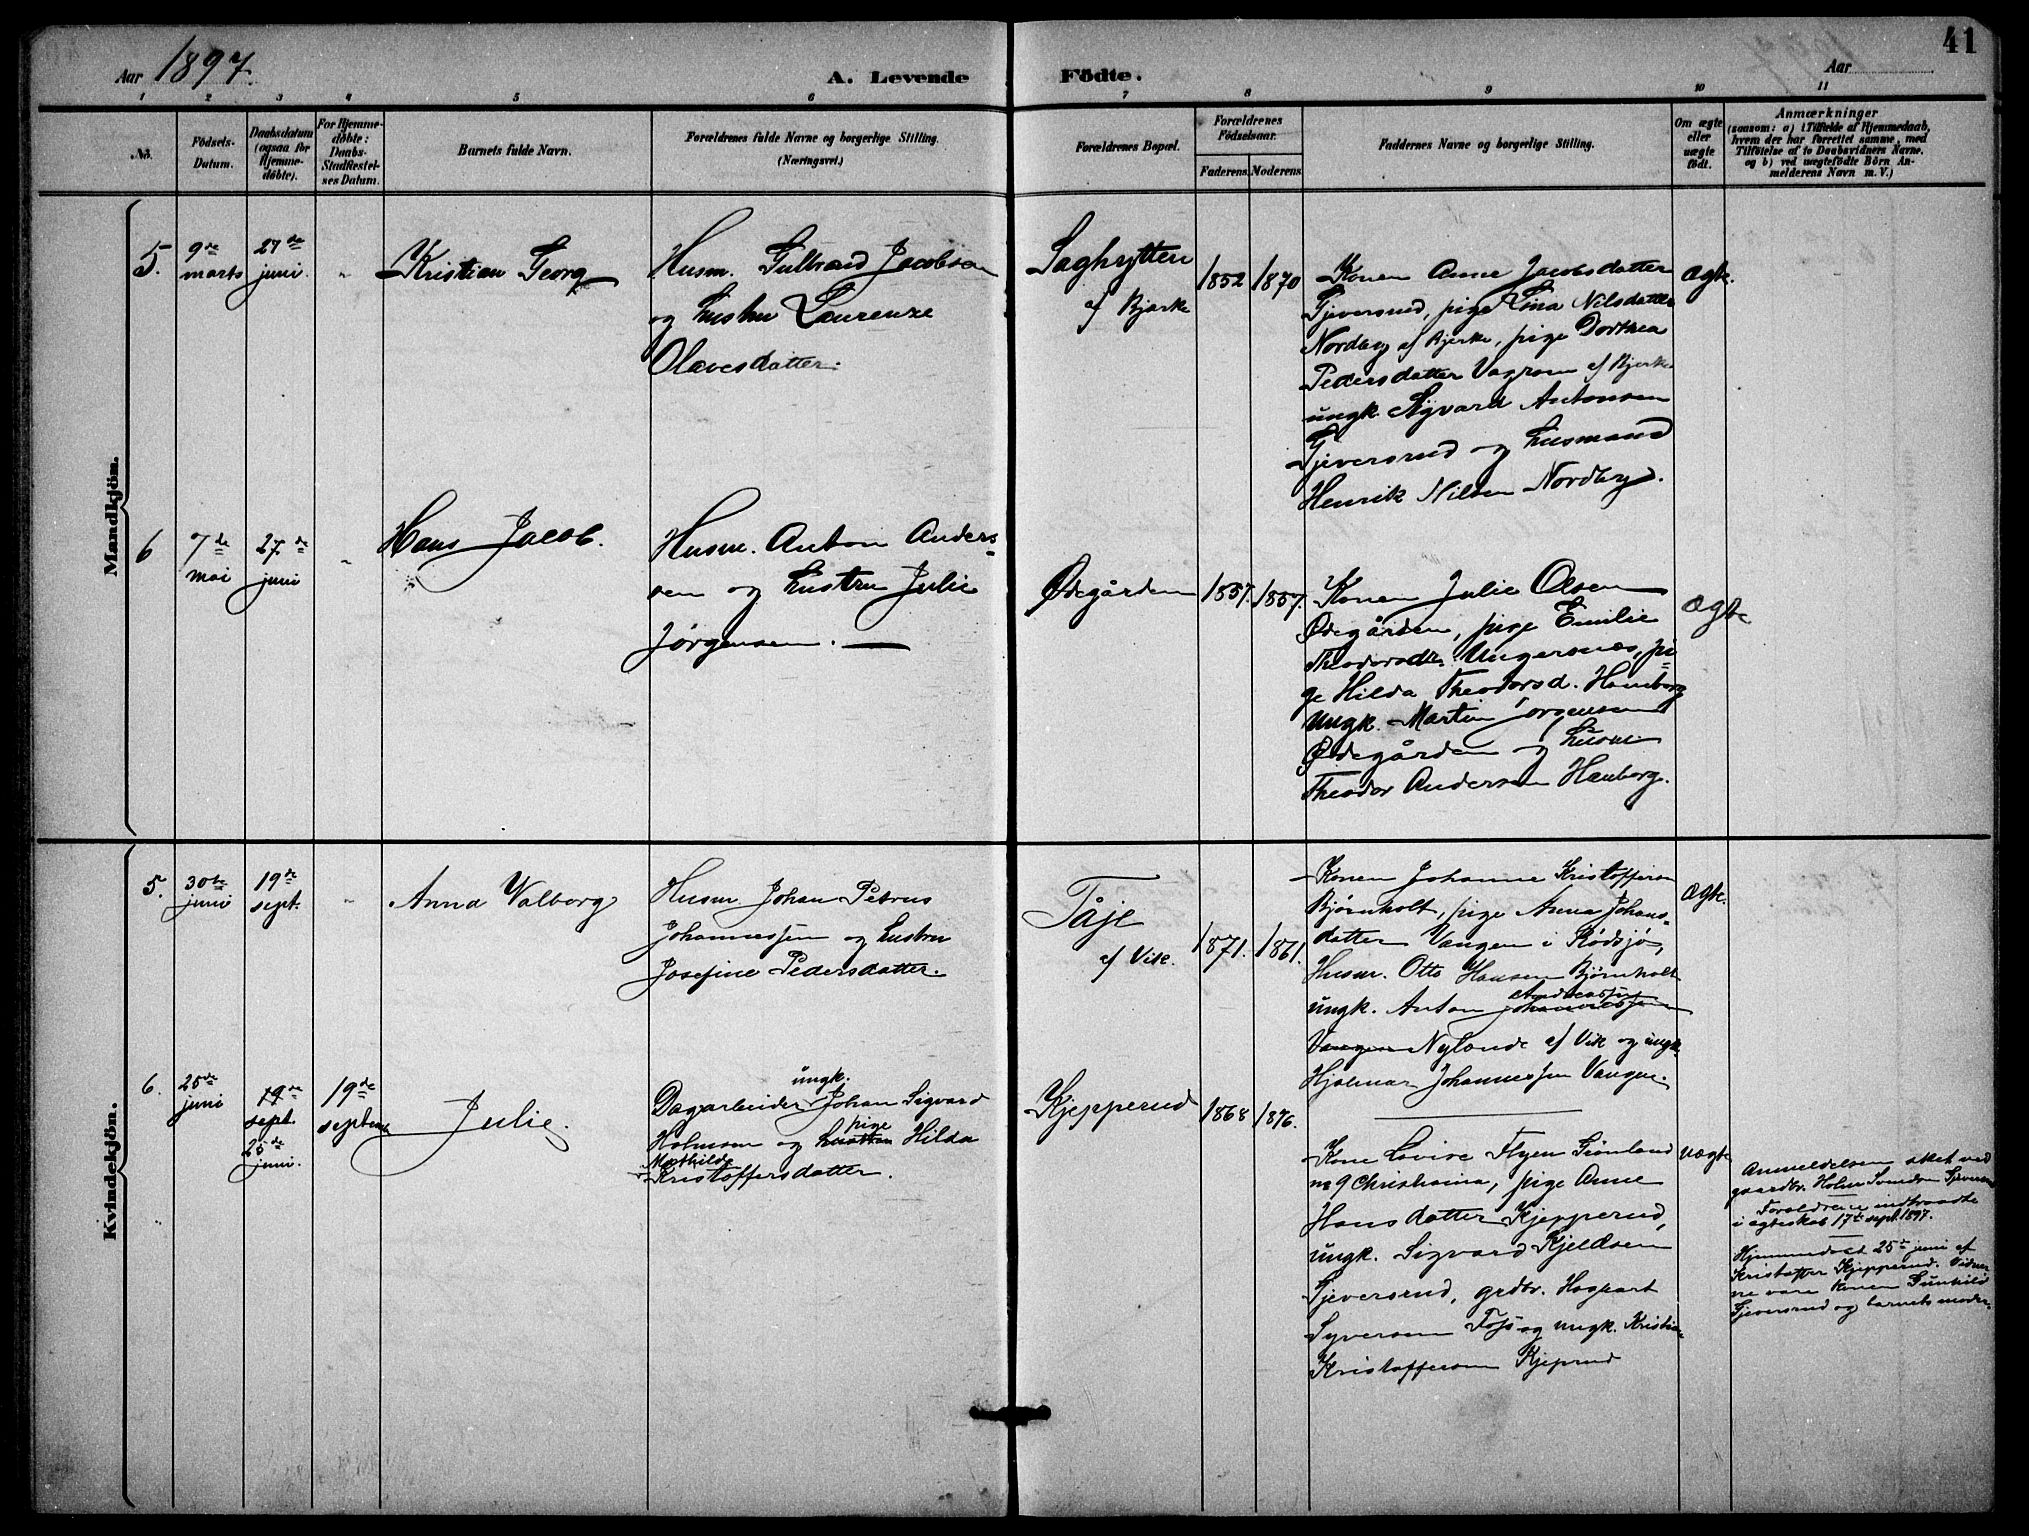 41
Aar 1897.
A. Levende Födte.
Aar
1 2 3 4 5 6 7 8 9 10 11
No.
Födsels-
Datum.
Daabsdatum
(ogsaa for
Hjemme-
döbte).
For Hjemme-
döbte:
Daabs-
Stadfæstel-
ses Datum.
Barnets fulde Navn.
Forældrenes fulde Navne og borgerlige Stilling.
(Næringsvei.)
Forældrenes Bopæl.
Forældrenes
Födselsaar.
Faderens. Moderens.
Faddernes Navne og borgerlige Stilling.
Om ægte
eller
uægte
födt.
Anmærkninger
(saasom: a) i Tilfælde af Hjemmedaab,
hvem der har forrettet samme, med
Tilföielse af to Daabsvidners Navne,
og b) ved uægtefödte Börn An-
melderens Navn m. V.)
Mandkjön.
5.
9de
marts
27de
juni.
"
Kristian Georg
Husm. Gulbrand Jacobsen
og hustru Laurense
Olavesdatter.
Saghytten
af Bjerke
1852
1870
Konen Anne Jacobsdatter
Gjeversrud, pige Lina Nilsdatter
Nordby af Bjerke, pige Dorthea
Pedersdatter af Bjerke
ungk. Sigvard Antonsen
Gjeversrud og husmand
Henrik Nilsen Nordby.
ægte.
6
7de
mai
27de
juni
"
Hans Jacob.
Husm. Anton Anders-
sen og hustru Julie
Jørgensen.
Ødegården
1857.
1857.
Konen Julie Olsen
Ødegården, pige Emilie
Theodorsdtr. Ungersnæs, pi-
ge Hilda Theodorsd. Hamborg
ungk. Martin Jørgensen
Ødegården og husm.
Theodor Andersen Hamborg.
ægte
Kvindekjön.
5.
30te
juni
19de
sept.
"
Anna Valborg
Husm. Johan Petrus
Johannessen og hustru
Josefine Pedersdatter.
Tåje
af Vik.
1871.
1861.
Konen Johanne Kristoffersen
Bjørnholt, pige Anna Johans-
datter Vangen i Rødsjø,
Husm. Otto Hansen Bjørnholt
Andreassen
ungk. Anton Johannessen
Vangen Nylænde af Vik og ungk.
Hjalmar Johannessen Vangen.
ægte.
6.
25de
juni
19de
sept.
25de
juni.
19de
septem
Julie.
ungk.
Dagarbeider Johan Sigvard
pige
Holmsen og hustru Hilda
Mathilde
Kristoffersdatter.
Kjepperud
1868
1876.
Kone Lovise Flyen Grønland
no 9 Christiania, pige Anne
Hansdatter Kjepperud,
ungk. Sigvard Kjeldsen
Gjeversrud, grdbr. Hagbart
Syversen Foss og ungk. Kristian
Kristoffersen Kjeprud
uægte
Anmeldelsen sket ved
gaardbr. Holm Svendsen Gjeversrud
Forældrene indtraadte
i ægteskab 17de sept. 1897.
Hjemmedøbt 25de juni af
Kristoffer Kjepperud. Vidner-
ne vare konen Gunhild
Gjeversrud og barnets moder.